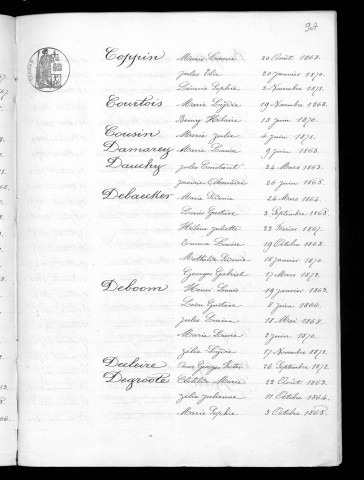 307
Coppin Marie Louise 20 Août 1868.
Jules Elie 20 Janvier 1870.
Louise Sophie 3 Novembre 1871.
Courtois Marie 19 Novembre 1868.
Remy 13 Juin 1870.
Cousin Marie Julie 4 Juin 1871.
Damarey Marie Louise 9 Juin 1863.
Dauchy Jules Constant 24 Mars 1863.
26 Juin 1865.
Debaecker Marie 24 Mars 1864.
Louis Gustave 3 Septembre 1865.
Hélène Juliette 22 Février 1867.
Emma Louise 19 Octobre 1868.
Mathilde 18 Janvier 1870.
Georges Gabriel 17 Mars 1872.
Deboom Henri Louis 19 Janvier 1863.
Léon Gustave 8 Juin 1866.
Jules 18 Mai 1868.
Marie Louise 2 Juin 1870.
Zélie 17 Novembre 1872.
Decleire Georges 26 Septembre 1872.
Degroote Clotilde Marie 22 Août 1863.
Zélie Julienne 11 Octobre 1864.
Marie Sophie 3 Octobre 1868.